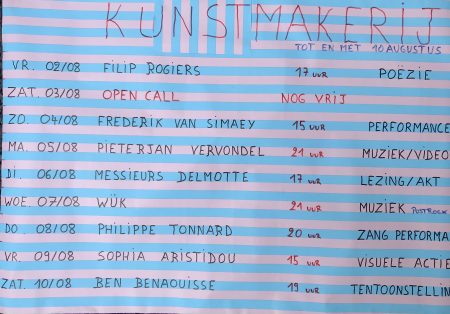 KUNSTMAKERIJ
TOT EN MET 10 AUGUSTUS
VR. 02/08 FILIP ROGIERS 17 UUR POËZIE
ZAT. 03/08 OPEN CALL NOG VRIJ
ZO. 04/08 FREDERIK VAN SIMAEY 15 UUR PERFORMANCE
MA. 05/08 PIETERJAN VERVONDEL 21 UUR MUZIEK/VIDEO
DI. 06/08 MESSIEURS DELMOTTE 17 UUR LEZING/AKT
WOE. 07/08 WÜK 21 UUR MUZIEK POSTROCK
DO. 08/08 PHILIPPE TONNARD 20 UUR ZANG PERFORMA
VR. 09/08 SOPHIA ARISTIDOU 15 UUR VISUELE ACTIE
ZAT. 10/08 BEN BENAOUISSE 19 UUR TENTOONSTELLIN